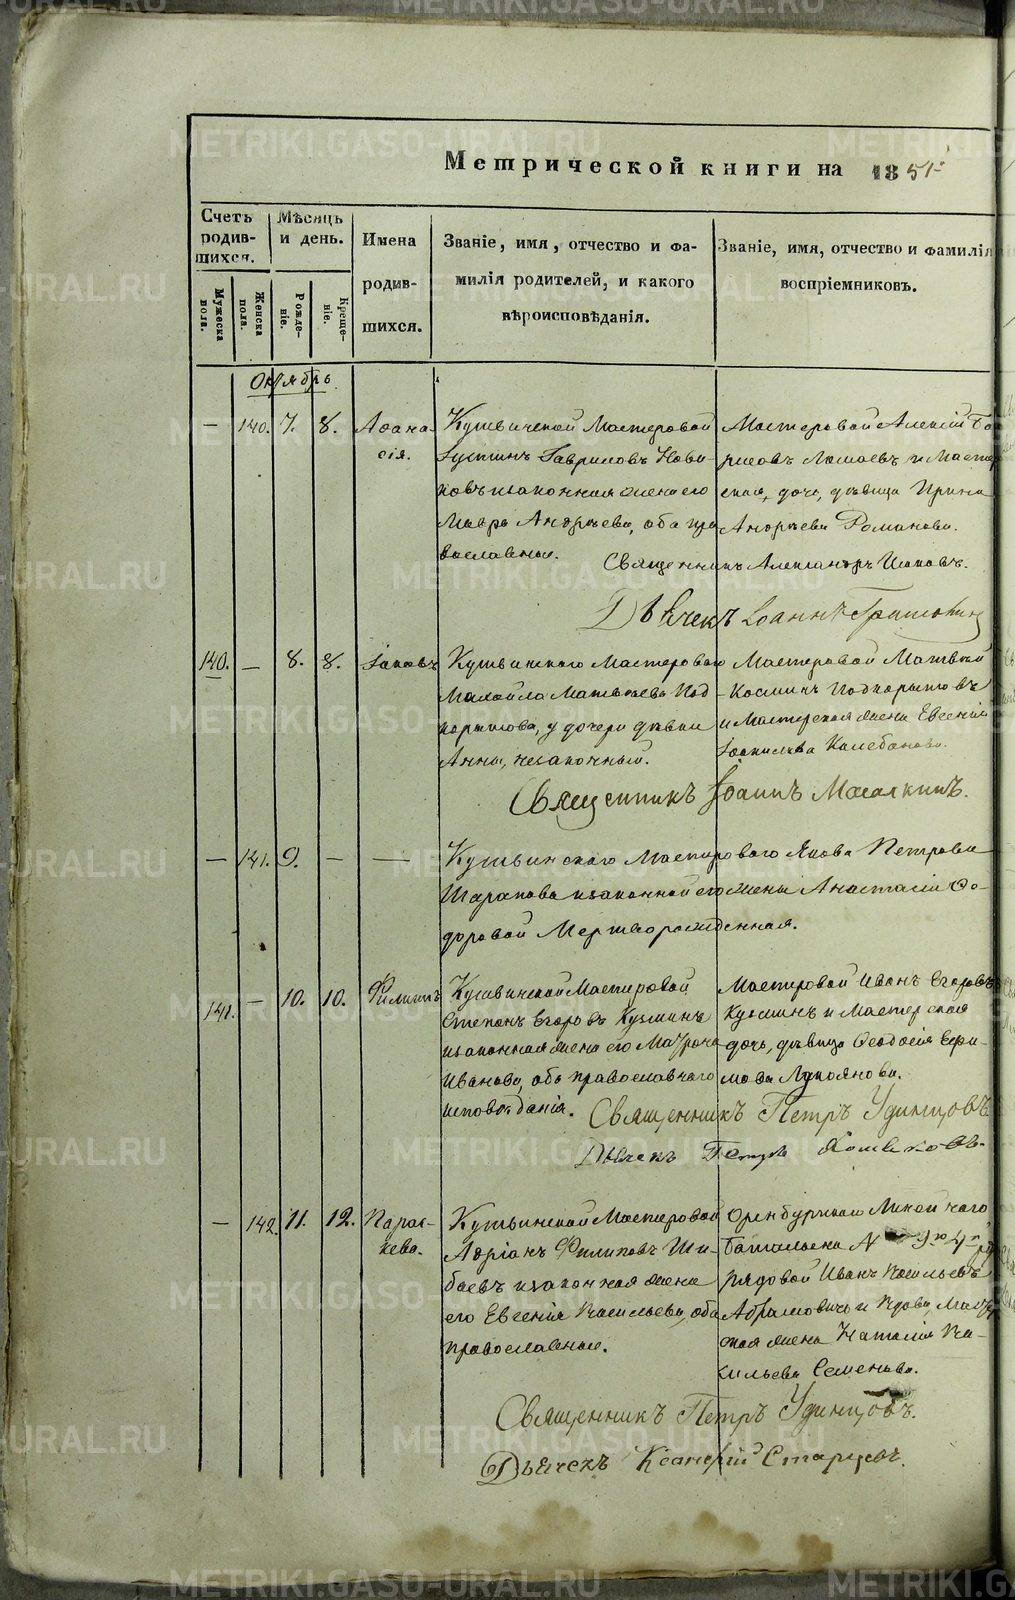 Метрической книги на 1851
Счетъ родившихся.
Мѣсяцъ и день.
Имена родившихся.
Званіе, имя, отчество и фамилія родителей, и какого вѣроисповѣданія.
Званіе, имя, отчество и фамилія воспріемниковъ.
Мужеска пола.
Женска пола.
Рожденіе.
Крещеніе.
Октябрь
— 140. 7. 8. Аѳана-
сія.
Кушвинской Мастеровой
Іустинъ Гавриловъ Нови-
ковъ и законная жена его
Мавра Андреева, оба пра
вославные.
Мастеровой Алексій Бо
рисовъ и Мастер
ская дочь, дѣвица Ирина
Андреева Романова.
Священникъ Александръ
Дьячекъ Іоаннъ
140. — 8. 8. Іаковъ
Кушвинскаго Мастероваго
Михайла Матвѣева Под
корытова, у дочери дѣвки
Анны, незаконный.
Мастеровой Матвей
Косминъ Подкорытовъ
и Мастерская жена Евгенія
Священникъ Іоаннъ
— 141. 9. — —
Кушвинскаго Мастероваго Якова Петрова
Шарапова и законной его жены Анастасіи Ѳе-
доровой Мертворожденная.
141. — 10. 10. Филиппъ
Кушвинской Мастеровой
Степанъ Егоровъ Кузминъ
и законная жена его Матрона
Иванова, оба православнаго
исповѣданія.
Мастеровой Иванъ Егоровъ
Кузминъ и Мастерская
дочь, дѣвица Ѳеодосія Ефи-
мова Лукоянова.
Священникъ Петръ Удинцовъ
Дьячекъ Петръ
— 142. 11. 12. Парас-
кева.
Кушвинской Мастеровой
Адріанъ Филиповъ Ши-
баевъ и законная жена
его Евгенія Васильева, оба
православные.
Оренбургскаго Линейнаго
Баталіона N
рядовой Иванъ Васильевъ
Абрамовичь и вдова, Мастер
ская жена Наталія Ва-
сильева Семенова.
Священникъ Петръ Удинцовъ.
Дьячекъ Старцевъ.
METRIKI.GASO-URAL.RU